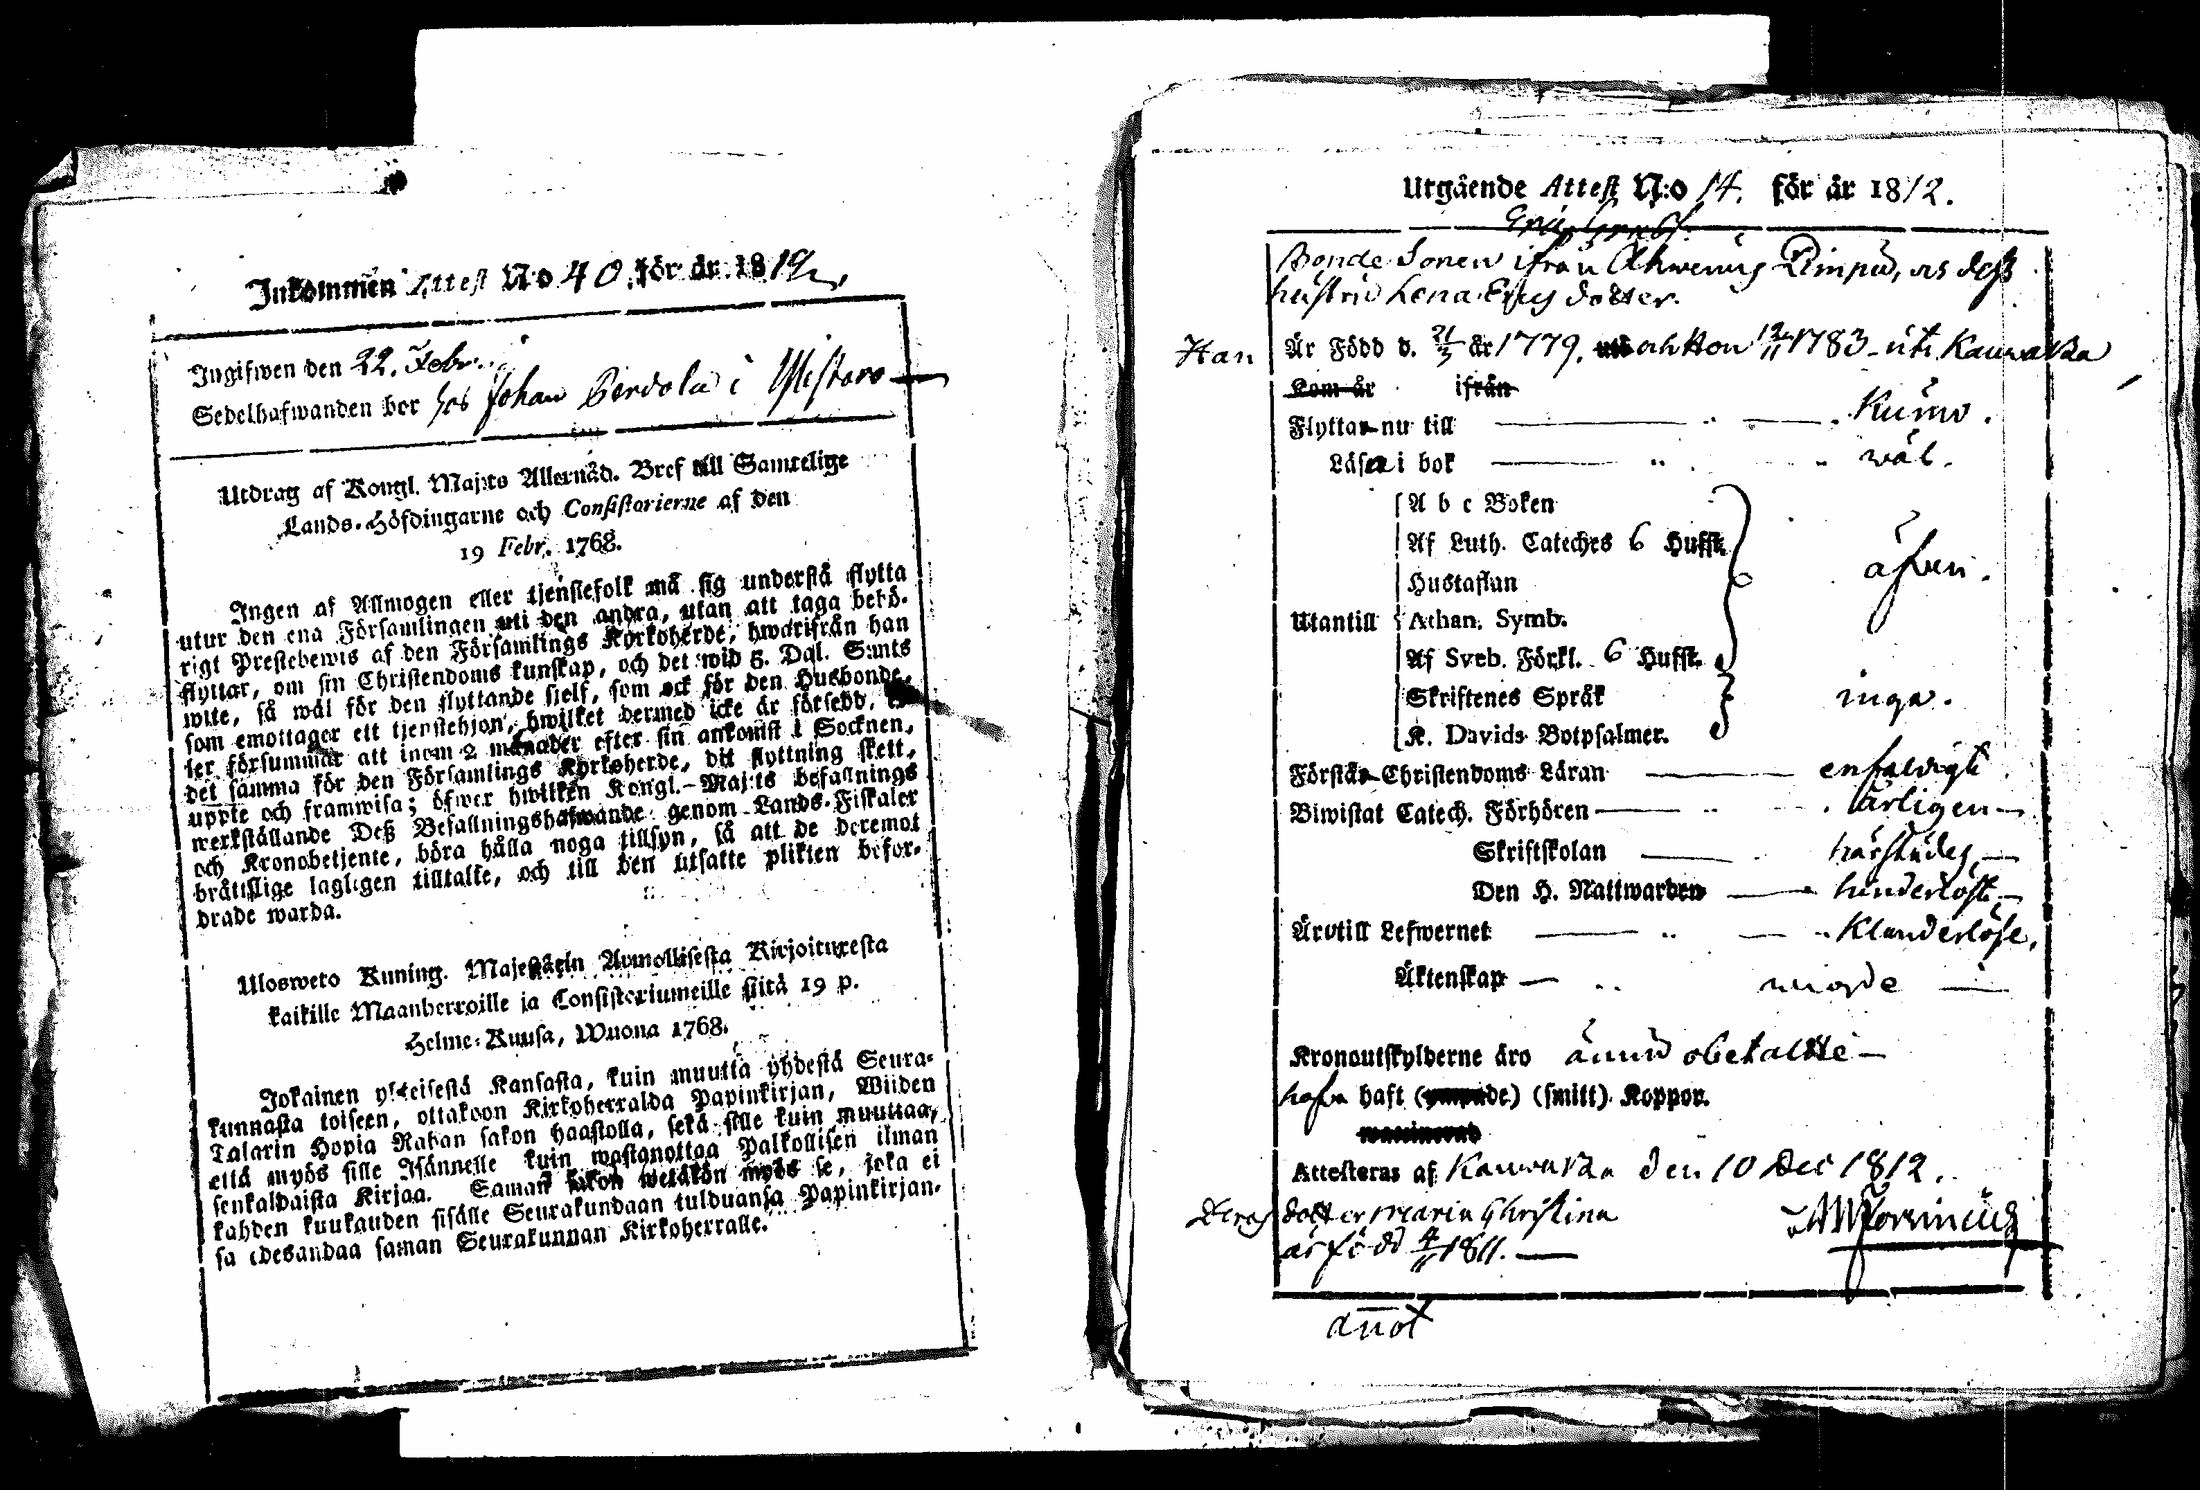 Inkommen Attest No 40. för år 1812.
Ingifwen den 22. Febr.
Sedelhafwanden bor hos Johan i
Utdrag af Kongl. Maj:ts Allernåd. Bref till Samtelige
Lands-Höfdingarne och Consistorierne af den
19 Febr. 1768.
Ingen af Allmogen eller tjenstefolk må sig understå flytta
utur den ena Församlingen uti den andra, utan att taga behö-
rigt Prestebewis af den Församlings Kyrkoherde, hwarifrån han
flyttar, om sin Christendoms kunskap, och det wid 5. Dal. S:mts
wite, så wäl för den flyttande sjelf, som ock för den Husbonde,
som emottager ett tjenstehjon, hwilket dermed icke är försedd, el-
ler försummar att inom 2 månader efter sin ankomst i Socknen,
det samma för den Församlings Kyrkoherde, dit flyttning skett,
uppte och framwisa; öfwer hwilken Kongl.-Maj:ts befallnings
werkställande Deß Befallningshafwande genom Lands-Fiskaler
och Kronobetjente, böra hålla noga tillsyn, så att de deremot
bråttslige lagligen tilltalte, och till den utsatte plikten befor-
drade warda.
Ulosweto Kuning. Majestätin Armollisesta Kirjoituresta
kaikille Maanherroille ja Consistoriumeille siitä 19 p.
Helme-Kuusa, Wuona 1768.
Jokainen yhteisestä Kansasta, kuin muutta yhdestä Seura-
kunnasta toiseen, ottakoon Kirkoherralda Papinkirjan, Wiiden
Talarin Hopia Rahan sakon haastolla, sekä sille kuin muuttaa,
että myös sille Isännelle kuin wastanottaa Palkollisen ilman
senkaldaista Kirjaa. Saman sakon wetäkön myös se, joka ei
kahden kuukauden sisälle Seurakundaan tulduansa Papinkirjan-
sa edesandaa saman Seurakunnan Kirkoherralle.
Utgående Attest N:o 14. för år 1812.
Bonde Sonen ifrån Ahwenus as deß
hustru Lena Ers dotter.
Han Är Född d. 21/3 år 1779. och Hon 12/11 1783 - uti Kauwatsa
Kom år ifrån
Flyttar nu till Kumo.
Läsa i bok wäl.
A b c Boken
Af Luth. Cateches 6 Hufst.
Hustaflan äfwen.
Utantill Athan. Symb.
Af Sveb. Förkl. 6 Hufst.
Skriftenes Språk inga.
K. Davids Botpsalmer.
Förstår Christendoms Läran enfaldigt
Biwistat Catech. Förhören årligen
Skriftskolan härstädes
Den H. Nattwarden hinderlöst
Äro till Lefwernet Klanderlöse.
Äktenskap
Kronoutskylderne äro ännu obetaldte
hafva haft (ympade) (smitt) Koppor.
vaccinerad
Attesteras af Kauwatsa den 10 Dec 1812.
Deras dotter Maria Christina
är född 4/11 1811.
anot